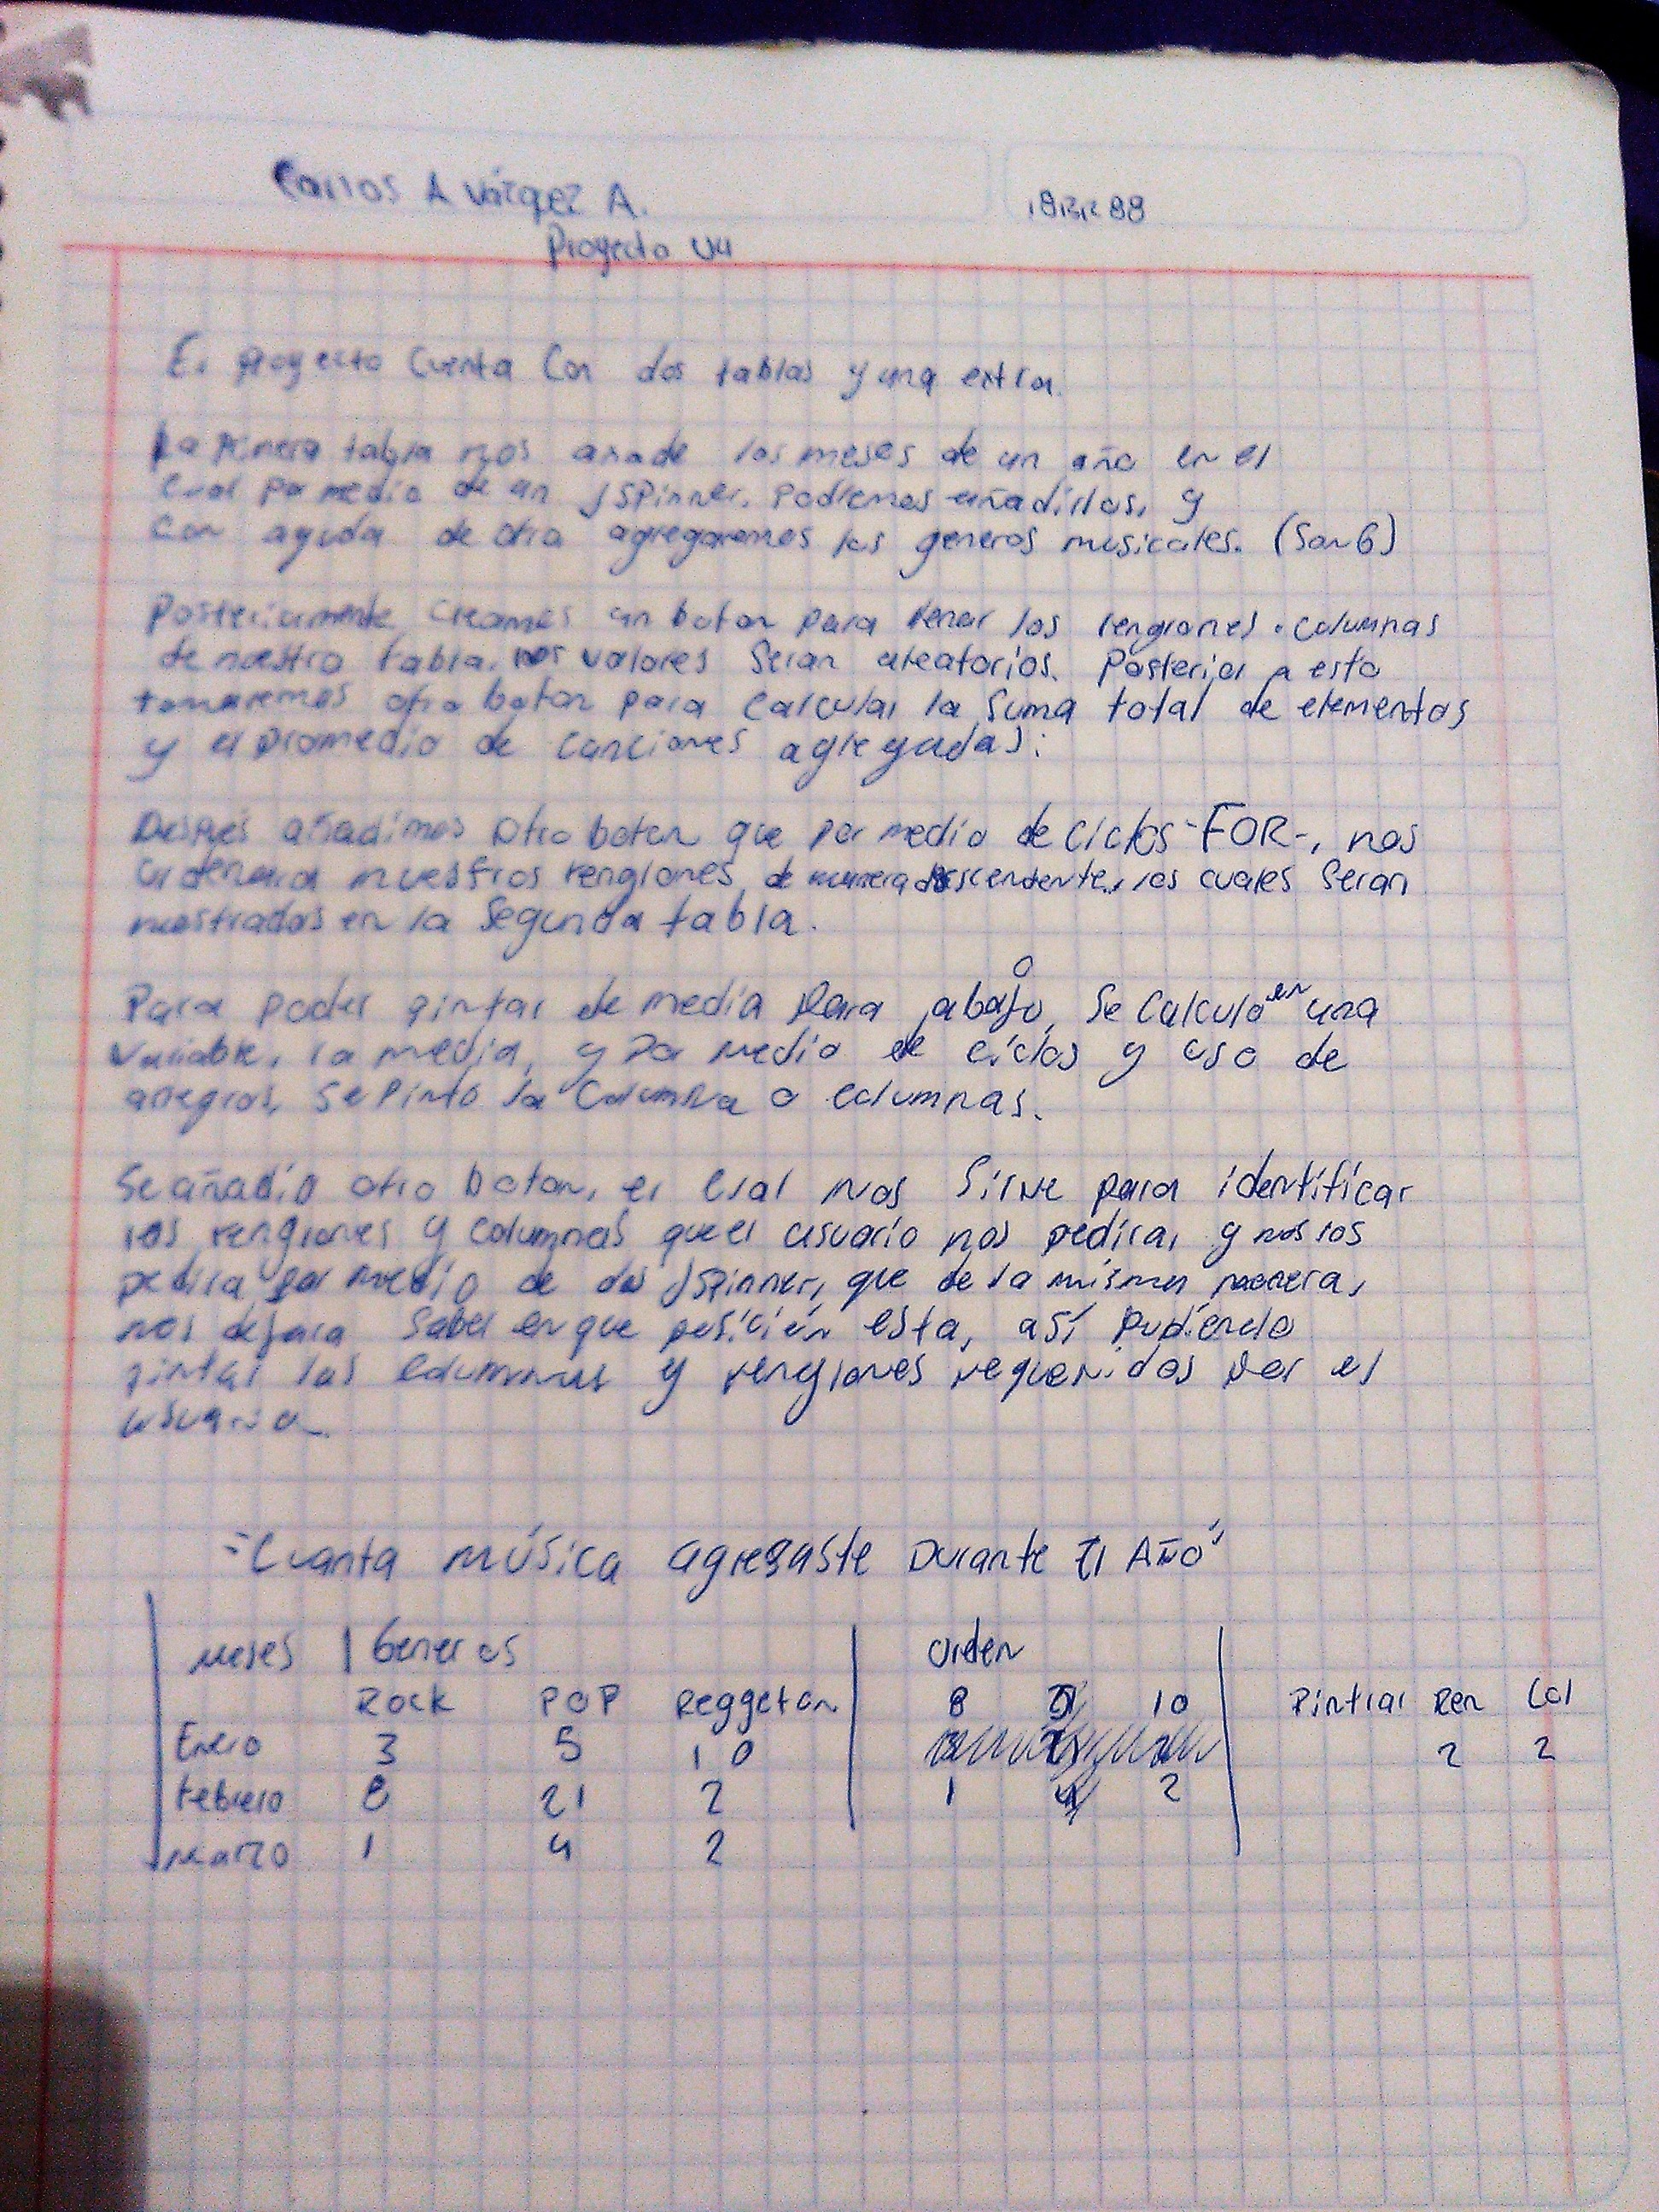 Carlos A Vázquez A.
Proyecto U4
El proyecto Cuenta Con dos tablas y una extra.
La primera tabla nos añade los meses de un año en el
cual por medio de un JSpinner. Podremos añadirlos, y
con ayuda de otro agregaremos los generos musicales. (Son 6)
Posteriormente creamos un boton para llenar los renglones columnas
de nuestra tabla. valores Seran aleatorios. Posterior a esto
tomaremos otro boton para calcular la Suma total de elementos
y el promedio de canciones agregadas.
Despues añadimos otro boton que por medio de ciclos -FOR-, nos
ordenara nuestros renglones, de manera descendente, los cuales Seran
mostrados en la Segunda tabla.
Para poder pintar de media para abajo, Se Calculó en una
variable, la media, y por medio de ciclos y uso de
arreglos, Se Pintó la Columna o columnas.
Se añadió otro boton, el cual nos Sirve para identificar
los renglones y columnas que el usuario nos pedira, y nos los
pedira por medio de dos JSpinner, que de la misma manera,
nos dejara Saber en que posición esta, así pudiendo
pintar las columnas y renglones requeridos por el
usuario.
"Cuanta música agregaste Durante El Año"
Meses | Generos Orden
Rock POP Reggeton 8 21 10 Pintrar Ren Col
Enero 3 5 10 2 2
Febrero 8 21 2 1 4 2
Marzo 1 4 2